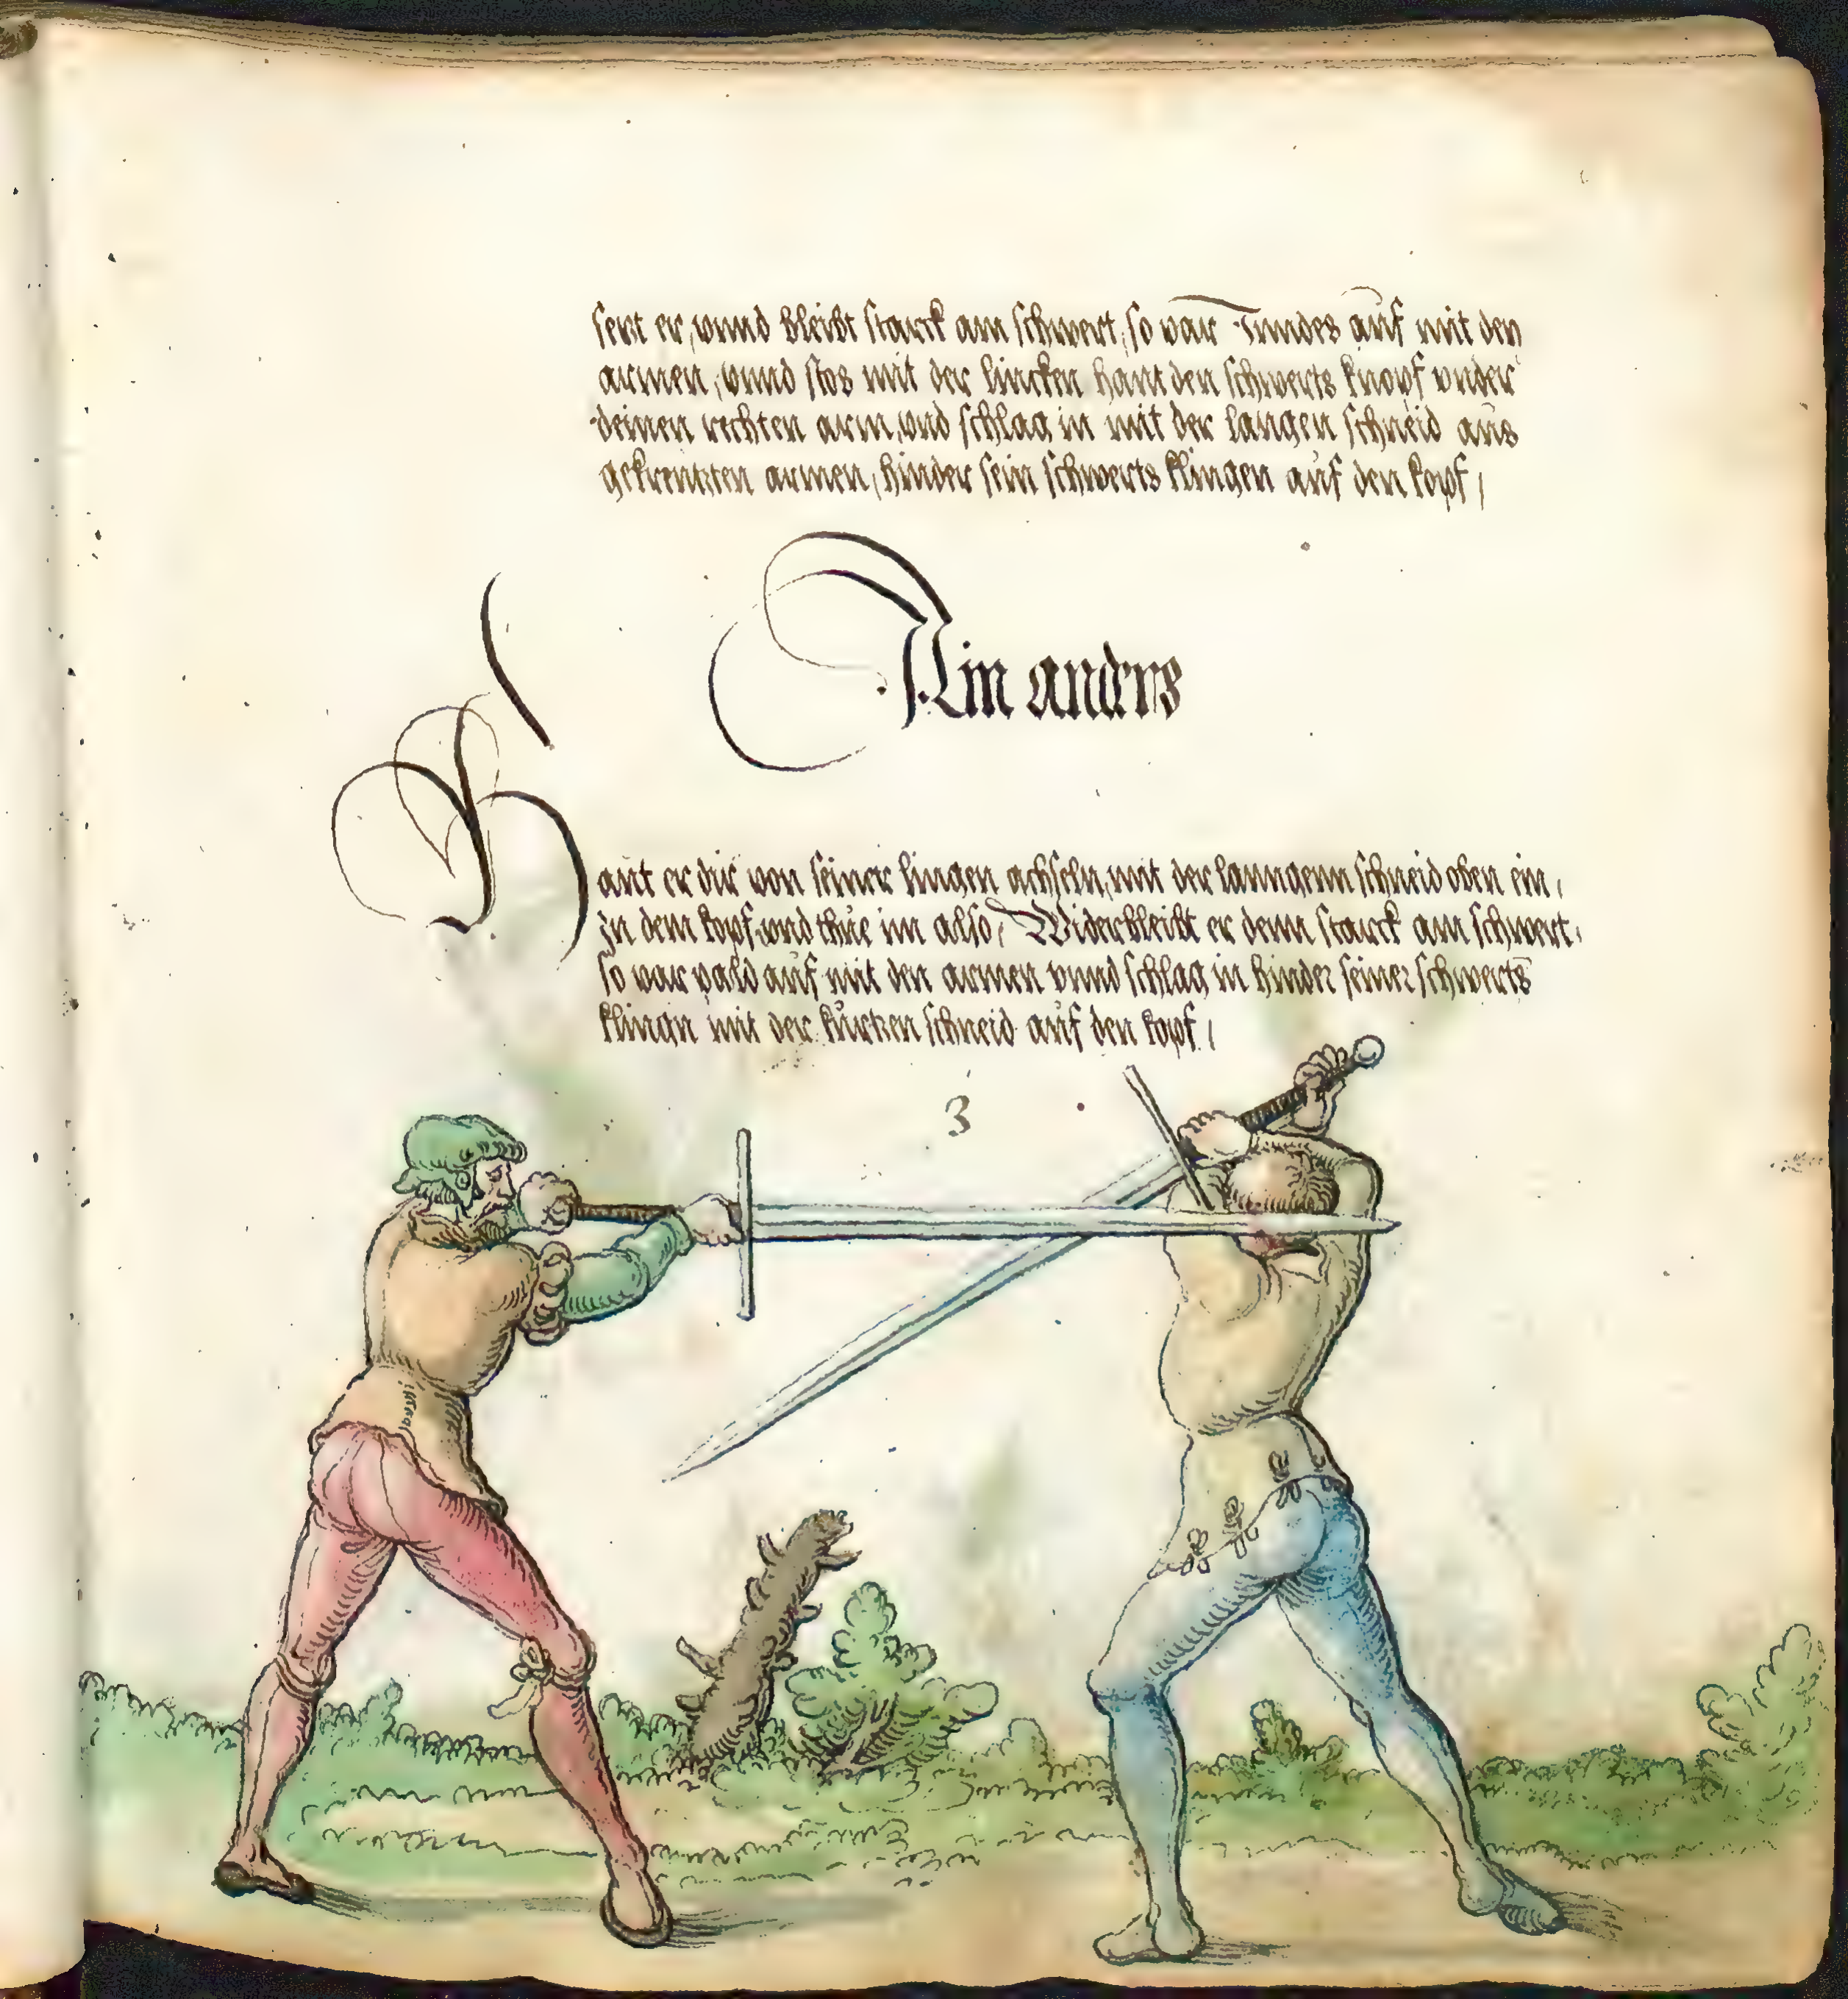 sert er, vnnd bleibt starck am schwert, so var Inndes auf mit den
armen, vnnd stos mit der lincken hant den schwerts knopf vnder
deinen rechten arm, vnd schlag in mit der langen schneid aus
gekreutzten armen, hinder sein schwerts klingen auf den kopf,
Ain anders
Haut er dir von seiner lingen achseln, mit der lanngenn schneid oben ein,
zu dem kopf, vnd thue im also, Widerbleibt er denn starck am schwert,
so var pald auf mit den armen vnnd schlag in hinder seiner schwerts
klingn mit der kurtzen schneid auf den kopf,
3